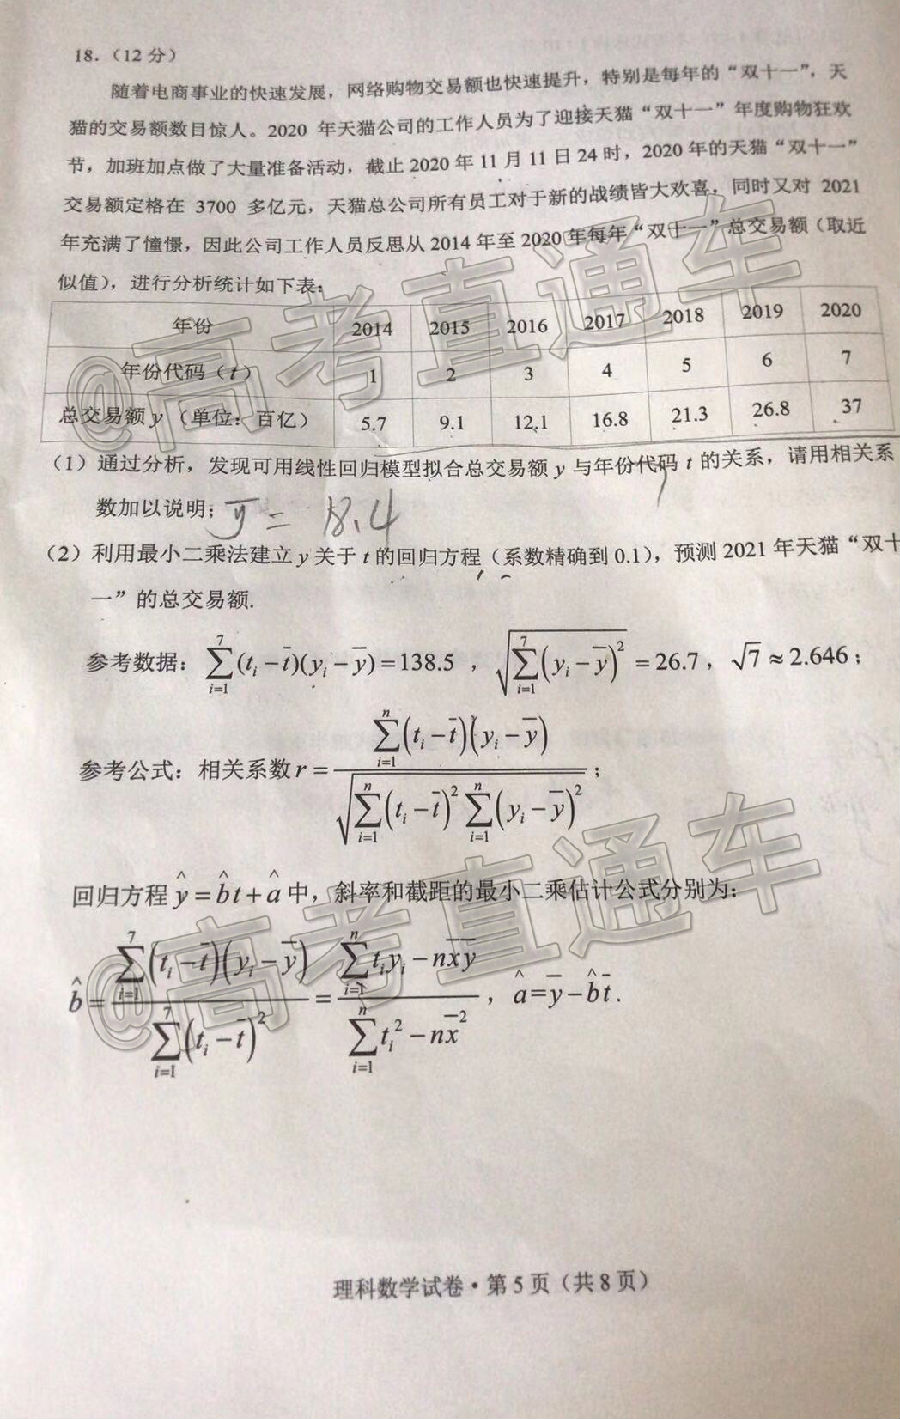 18.（12 分）
随着电商事业的快速发展，网络购物交易额也快速提升，特别是每年的“双十一”，天
猫的交易额数目惊人。2020 年天猫公司的工作人员为了迎接天猫“双十一”年度购物狂欢
节，加班加点做了大量准备活动，截止 2020 年 11 月 11 日 24 时，2020 年的天猫“双十一”
交易额定格在 3700 多亿元，天猫总公司所有员工对于新的战绩皆大欢喜，同时又对 2021
年充满了憧憬，因此公司工作人员反思从 2014 年至 2020 年每年“双十一”总交易额（取近
似值），进行分析统计如下表：
年份 2014 2015 2016 2017 2018 2019 2020
年份代码（t） 1 2 3 4 5 6 7
总交易额 y （单位：百亿） 5.7 9.1 12.1 16.8 21.3 26.8 37
（1）通过分析，发现可用线性回归模型拟合总交易额 y 与年份代码 t 的关系，请用相关系
数加以说明； y̅ = 18.4
（2）利用最小二乘法建立 y 关于 t 的回归方程（系数精确到 0.1），预测 2021 年天猫“双十
一”的总交易额.
参考数据：∑_{i=1}^{7}(t_i − t̅)(y_i − y̅) = 138.5 ，√(∑_{i=1}^{7}(y_i − y̅)²) = 26.7，√7 ≈ 2.646；
参考公式：相关系数 r = ∑_{i=1}^{n}(t_i − t̅)(y_i − y̅) / √(∑_{i=1}^{n}(t_i − t̅)² ∑_{i=1}^{n}(y_i − y̅)²)；
回归方程 ŷ = b̂t + â 中，斜率和截距的最小二乘估计公式分别为：
b̂ = ∑_{i=1}^{7}(t_i − t̅)(y_i − y̅) / ∑_{i=1}^{7}(t_i − t̅)² = (∑_{i=1}^{n} t_i y_i − n x̅ y̅) / (∑_{i=1}^{n} t_i² − n x̅²)，â = y̅ − b̂ t̅.
理科数学试卷·第 5 页（共 8 页）
@高考直通车
@高考直通车